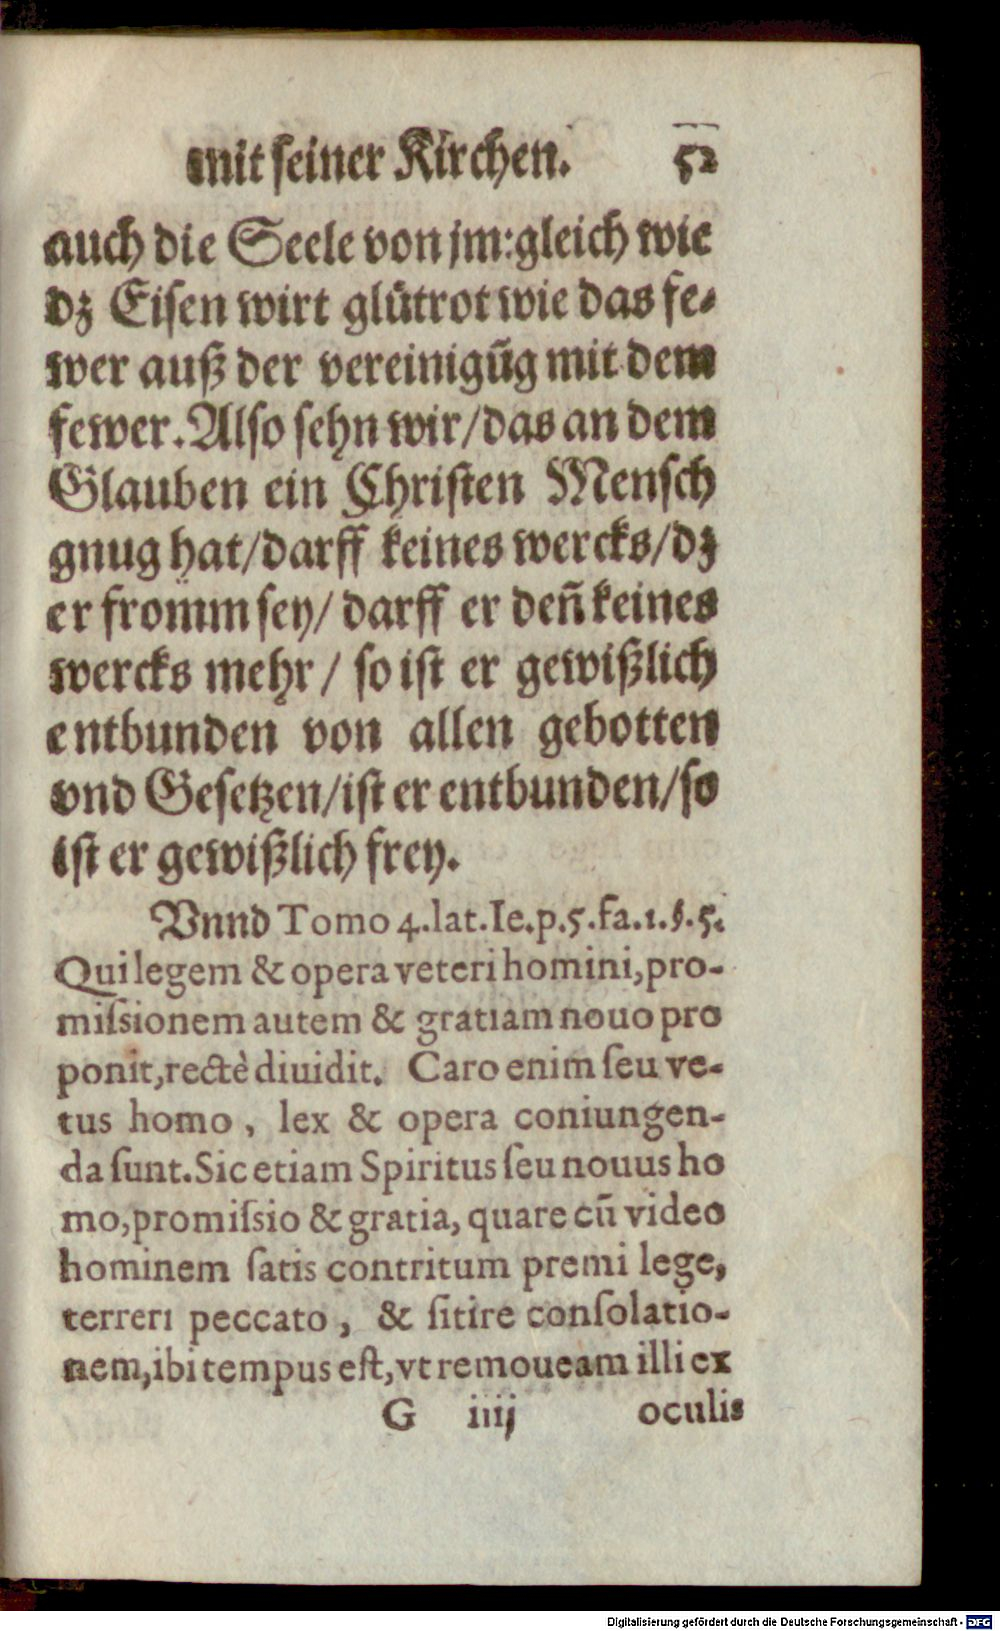 mit seiner Kirchen. 52
auch die Seele von jm: gleich wie
dz Eisen wirt glůtrot wie das fe-
wer auß der vereinigũg mit dem
fewer. Also sehn wir/das an dem
Glauben ein Christen Mensch
gnug hat/darff keines wercks/dz
er fromm sey/ darff er deñ keines
wercks mehr/ so ist er gewißlich
entbunden von allen gebotten
vnd Gesetzen/ist er entbunden/so
ist er gewißlich frey.
Vnnd Tomo 4. lat. Ie. p. 5. fa. 1. §. 5.
Qui legem & opera veteri homini, pro-
missionem autem & gratiam nouo pro
ponit, rectè diuidit. Caro enim seu ve-
tus homo, lex & opera coniungen-
da sunt. Sic etiam Spiritus seu nouus ho
mo, promissio & gratia, quare cũ video
hominem satis contritum premi lege,
terreri peccato, & sitire consolatio-
nem, ibi tempus est, vt remoueam illi ex
G iiij oculis
Digitalisierung gefördert durch die Deutsche Forschungsgemeinschaft - DFG